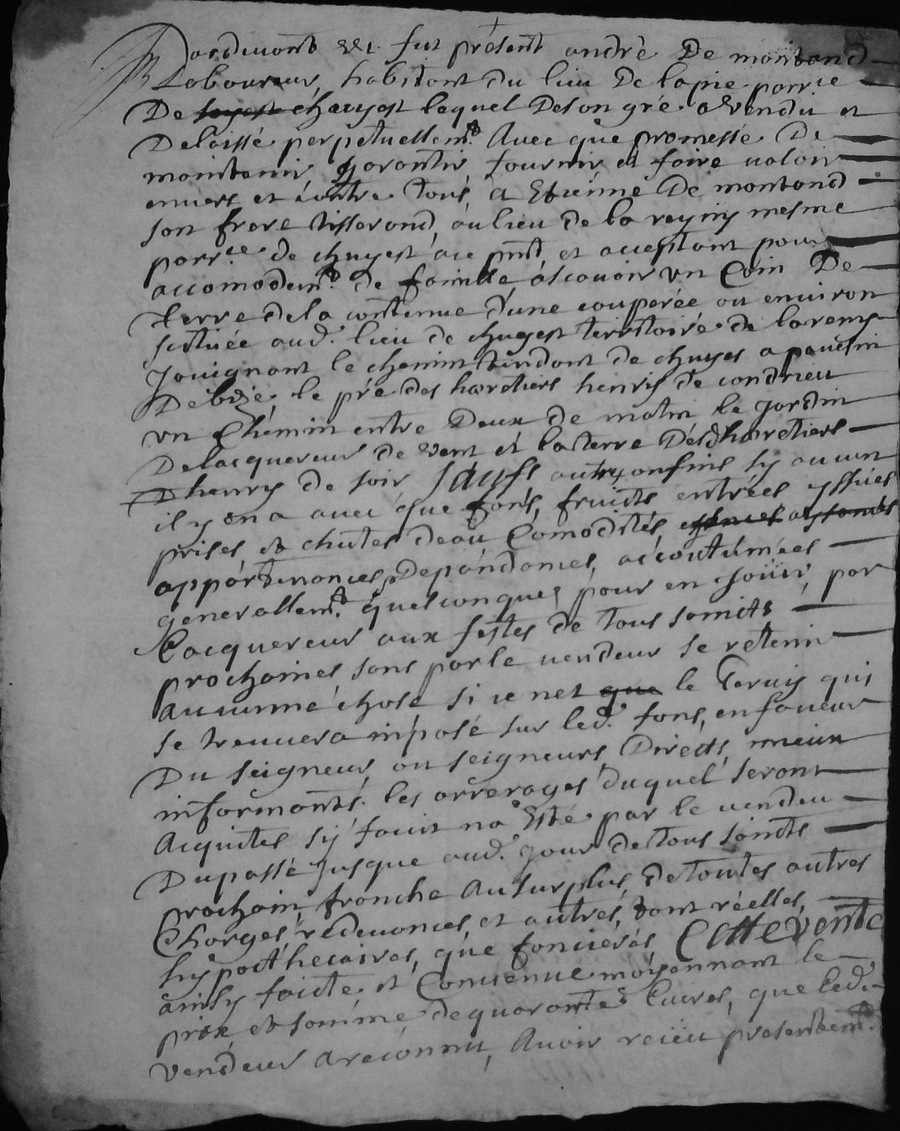 Pardevant &c. fut présent andré De montand
Laboureur, habitant du lieu De lapie parr.se
De chuyest lequel De son gré a vendu et
Delaissé perpetuellem.t Avec que promesse De
maintenir garantir fournir et faire valoir
envers et contre Tous, a Etienne De montand
son frere tisserand, au lieu de la reyny mesme
parr.se de chuyest ace pnt, et aceptant pour
accomodem.t de famille ascavoir un Coin De
Terre de la contenue d'une couperée ou environ
scituée aud. lieu de chuyest territoire de
Jouignant le chemin tendant de chuyes a pavesin
De bize, le pré des haretiers henry de condrieu
un Chemin entre Deux de matin le Jardin
De lacquereur de vent et la terre Desd haretiers
D henry de soir Saufs autres confins sy aucun
il y en a avec que fons, fruicts entrées yssües
prises et chutes deau Comodités
appartenances, Dependances, accoutumées
generallem.t quelconques pour en Joüir, par
Lacquereur aux festes de Tous saints
prochaines sans par le vendeur se retenir
Aucunne chose si ce net que le Servis qui
se treuvera inposé sur led. fons, en faveur
Du seigneur ou seigneurs Directs mieux
informants les arrerages duquel seront
Acquités sy faict na Esté par le vendeu
Du passé Jusque aud. Jour de Tous saints
prochain, franche Au surplus, de toutes autres
Charges, redevances, et autres, tant réelles,
hypothecaires, que foncieres, Cette vente
ainsy faicte et Convenue moyennant le
prix et somme de quarante Livres, que led.
vendeur a reconnu, Avoir reçeu presentem.t